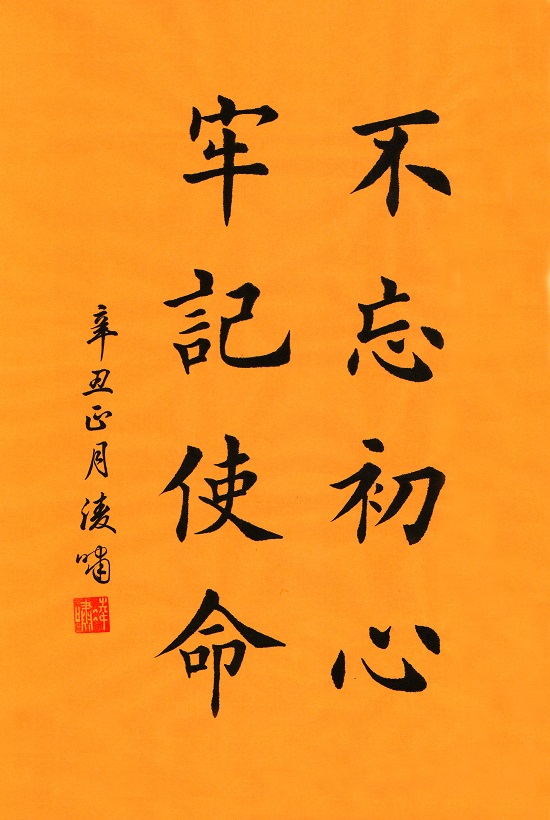 不忘初心
牢記使命
辛丑正月淩嘯